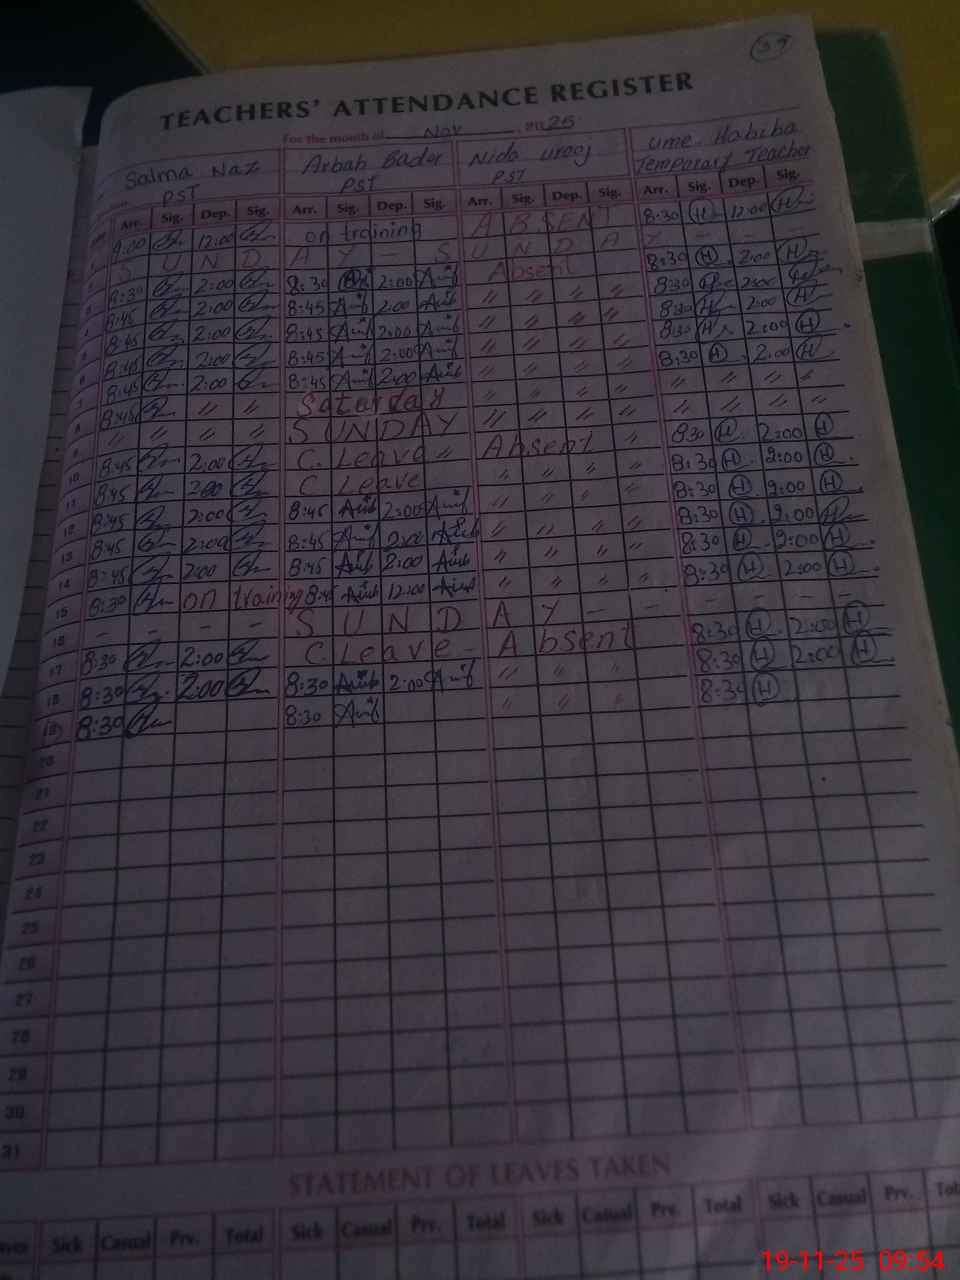 39
TEACHERS' ATTENDANCE REGISTER
For the month of Nov 2025
Salma Naz Arbab Bader Nida Urooj Ume Habiba
PST PST PST Temporary Teacher
Arr. Sig. Dep. Sig. Arr. Sig. Dep. Sig. Arr. Sig. Dep. Sig. Arr. Sig. Dep. Sig.
9:00 12:00 on training ABSENT 8:30 H 12:00 H
SUNDAY - SUNDAY - - -
8:30 2:00 8:30 2:00 Absent 8:30 H 2:00 H
8:45 2:00 8:45 2:00 " " " " 8:30 2:00
8:45 2:00 8:45 2:00 " " " " 8:30 H 2:00 H
8:45 2:00 8:45 2:00 " " " " 8:30 H 2:00 H
8:45 2:00 8:45 2:00 " " " " 8:30 H 2:00 H
8:45 " " Saturday " " " " " " " "
8 " " " " SUNDAY " " " " " " " "
9 8:45 2:00 C. Leave " Absent " 8:30 H 2:00 H
10 8:45 2:00 C Leave " " " " 8:30 H 2:00 H
11 8:45 2:00 8:45 2:00 " " " " 8:30 H 2:00 H
12 8:45 2:00 8:45 2:00 " " " " 8:30 H 2:00 H
13 8:45 2:00 8:45 2:00 " " " " 8:30 H 2:00 H
14 8:30 on training 8:45 12:00 " " " " 8:30 H 2:00 H
15 - - - - SUNDAY - - - - - -
16 8:30 2:00 C. Leave - Absent 8:30 H 2:00 H
17 8:30 2:00 8:30 2:00 " " " 8:30 H 2:00 H
18 8:30 8:30 " " " 8:30 H
19
20
21
22
23
24
25
26
27
28
29
30
31
STATEMENT OF LEAVES TAKEN
Sick Casual Prv. Total Sick Casual Prv. Total Sick Casual Prv. Total Sick Casual Prv.
19-11-25 09:54